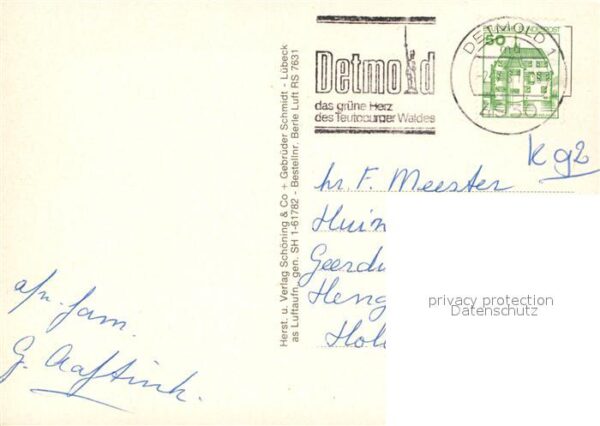 Detmold
das grüne Herz
des Teutoburger Waldes
DETMOLD 1
50
4930
kg2
hr. F. Meester
Huin
Geerd
Heng
Hol
privacy protection
Datenschutz
Herst. u. Verlag Schöning & Co + Gebrüder Schmidt - Lübeck
as Luftaufn. gen. SH 1-61782 - Bestellnr. Berle Luft RS 7631
afz. fam.
G.